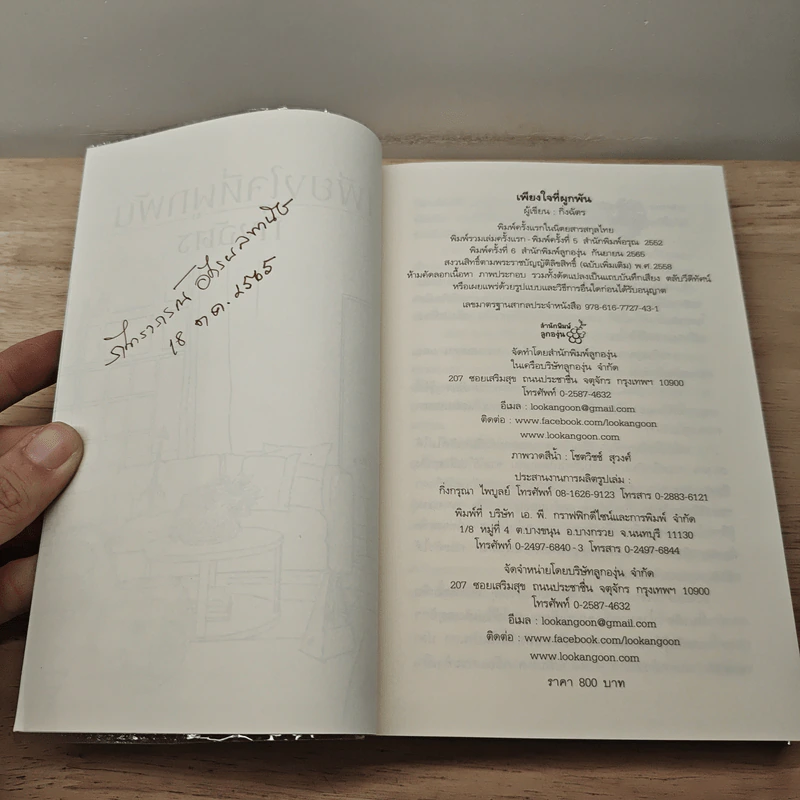 ๑๘ ต.ค. ๒๕๖๕
เพียงใจที่ผูกพัน
ผู้เขียน : กิ่งฉัตร
พิมพ์ครั้งแรกในนิตยสารสกุลไทย
พิมพ์รวมเล่มครั้งแรก - พิมพ์ครั้งที่ 5 สำนักพิมพ์อรุณ 2552
พิมพ์ครั้งที่ 6 สำนักพิมพ์ลูกองุ่น กันยายน 2565
สงวนสิทธิ์ตามพระราชบัญญัติลิขสิทธิ์ (ฉบับเพิ่มเติม) พ.ศ. 2558
ห้ามคัดลอกเนื้อหา ภาพประกอบ รวมทั้งดัดแปลงเป็นแถบบันทึกเสียง ตลับวีดิทัศน์
หรือเผยแพร่ด้วยรูปแบบและวิธีการอื่นใดก่อนได้รับอนุญาต
เลขมาตรฐานสากลประจำหนังสือ 978-616-7727-43-1
สำนักพิมพ์
ลูกองุ่น
จัดทำโดยสำนักพิมพ์ลูกองุ่น
ในเครือบริษัทลูกองุ่น จำกัด
207 ซอยเสริมสุข ถนนประชาชื่น จตุจักร กรุงเทพฯ 10900
โทรศัพท์ 0-2587-4632
อีเมล : lookangoon@gmail.com
ติดต่อ : www.facebook.com/lookangoon
www.lookangoon.com
ภาพวาดสีน้ำ : โชติวิชช์ สุวงศ์
ประสานงานการผลิตรูปเล่ม :
กิ่งกรุณา ไพบูลย์ โทรศัพท์ 08-1626-9123 โทรสาร 0-2883-6121
พิมพ์ที่ บริษัท เอ. พี. กราฟฟิกดีไซน์และการพิมพ์ จำกัด
1/8 หมู่ที่ 4 ต.บางขนุน อ.บางกรวย จ.นนทบุรี 11130
โทรศัพท์ 0-2497-6840-3 โทรสาร 0-2497-6844
จัดจำหน่ายโดยบริษัทลูกองุ่น จำกัด
207 ซอยเสริมสุข ถนนประชาชื่น จตุจักร กรุงเทพฯ 10900
โทรศัพท์ 0-2587-4632
อีเมล : lookangoon@gmail.com
ติดต่อ : www.facebook.com/lookangoon
www.lookangoon.com
ราคา 800 บาท